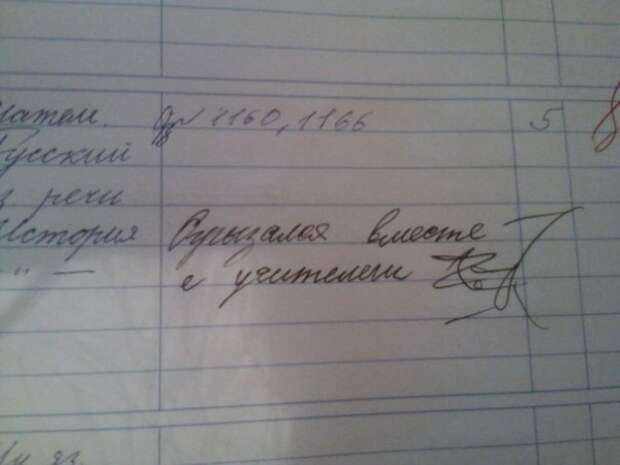 Матем. № 1160, 1166 5
Русский
речи
История Огрызался вместе
" — с учителем
яз.